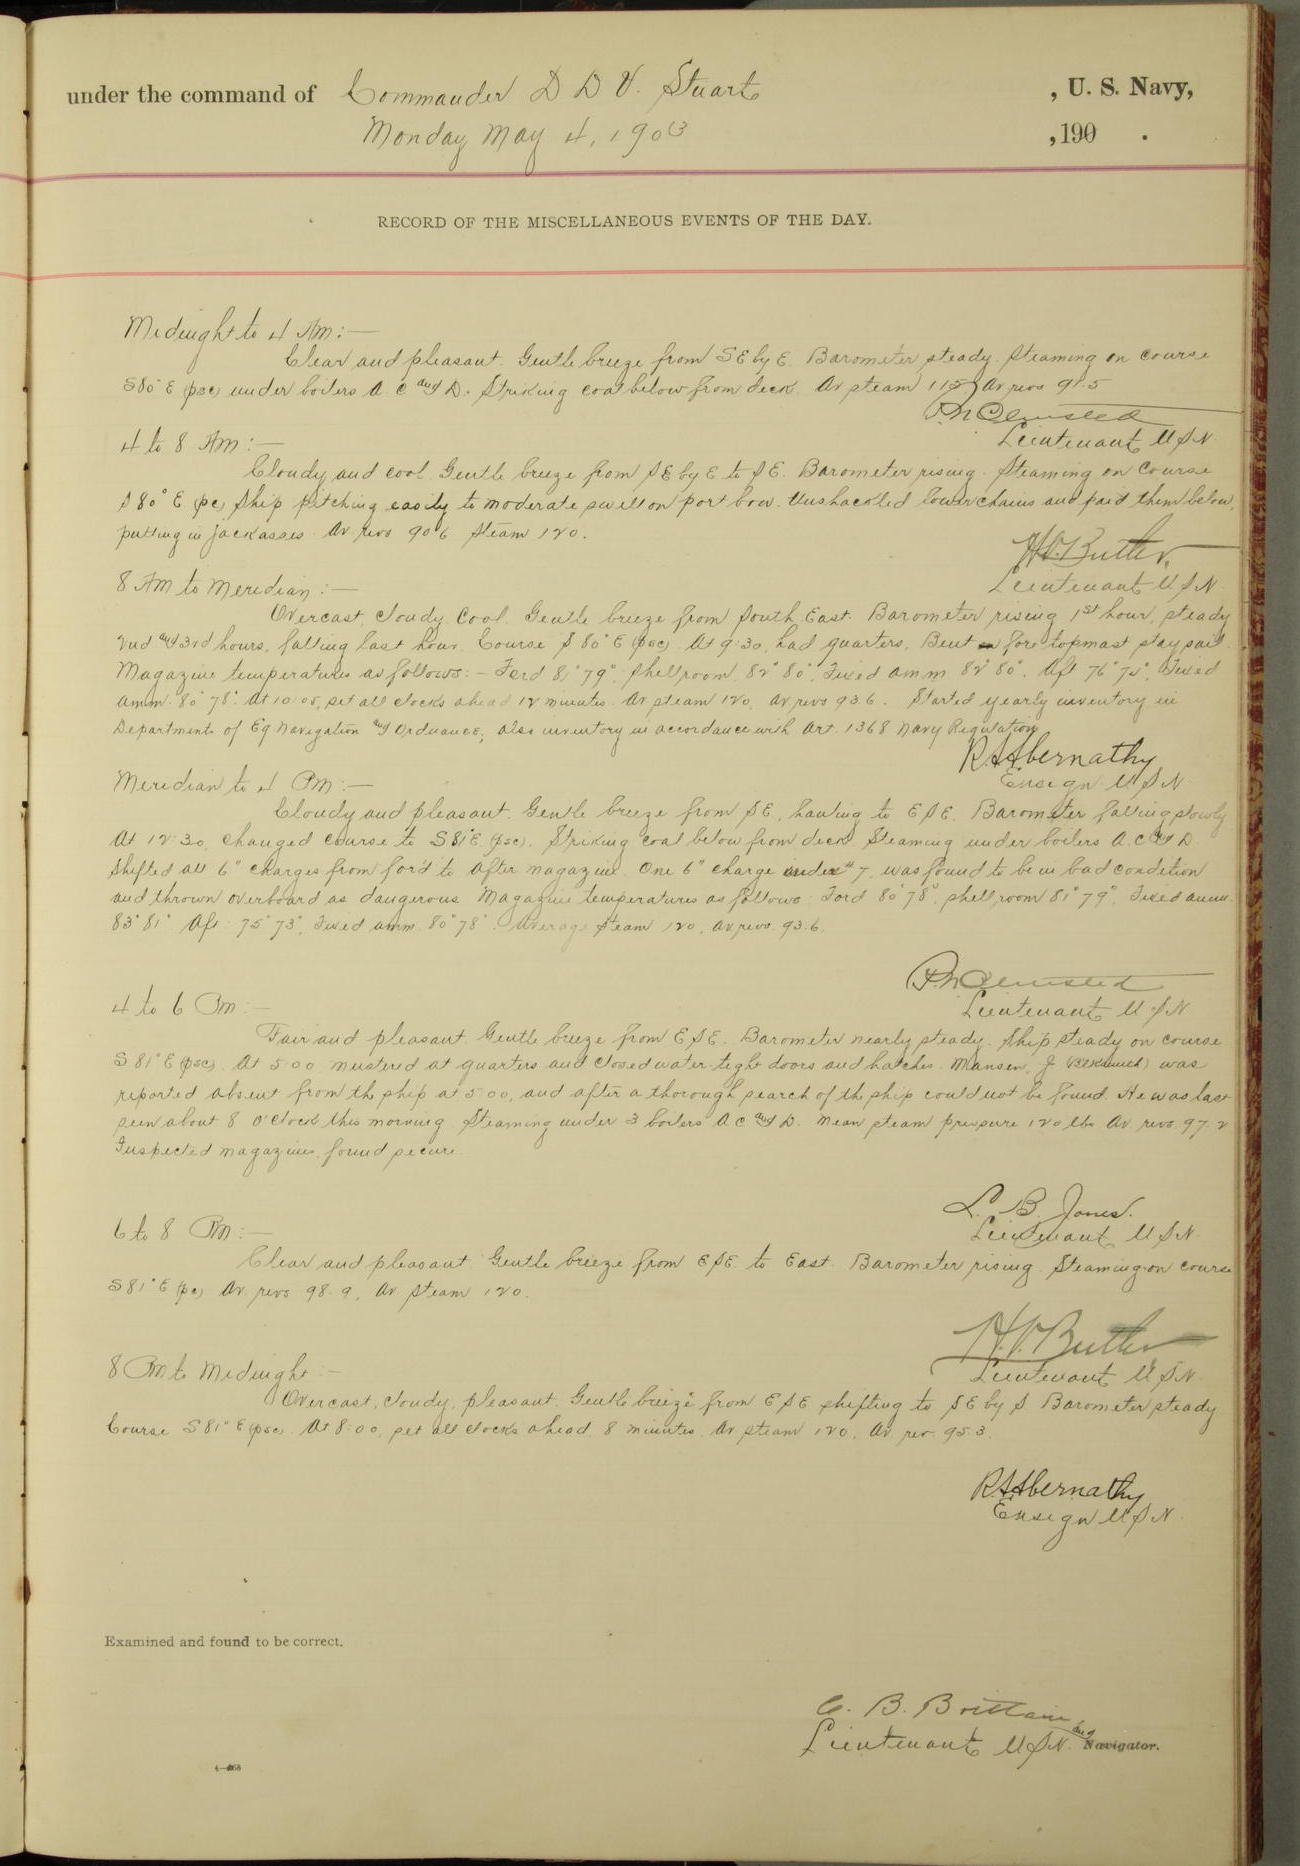 under the command of Commander D D V. Stuart , U. S. Navy,
Monday May 4, 1903 , 190 .
RECORD OF THE MISCELLANEOUS EVENTS OF THE DAY.
Midnight to 4 AM:—
Clear and pleasant. Gentle breeze from SE by E. Barometer steady. Steaming on course
S 80° E (psc) under boilers A. C and D. Striking coal below from deck. Av steam 115 Av revs 91.5
P.N. Olmsted
Lieutenant U S N.
4 to 8 AM:—
Cloudy and cool. Gentle breeze from SE by E to SE. Barometer rising. Steaming on course
S 80° E (pc) Ship pitching easily to moderate swell on port bow. Unshackled lower chains and paid them below,
putting in jackasses. Av revs 90.6 Steam 120.
H.V. Butler,
Lieutenant U S N.
8 AM to Meridian:—
Overcast, cloudy, cool. Gentle breeze from South East. Barometer rising 1st hour, steady
2nd and 3rd hours, falling last hour. Course S 80° E (psc). At 9:30, had quarters. Bent fore topmast stay sail.
Magazine temperatures as follows:— Ford 81° 79°, Shell room, 82° 80°, Fixed amm. 82° 80°. Aft 76° 75°, Fixed
amm. 80° 78°. At 10:05, set all clocks ahead 12 minutes. Av steam 120, Av revs 93.6. Started yearly inventory in
Departments of Eq Navigation and Ordnance, also inventory in accordance with Art. 1368 Navy Regulation
R.A. Abernathy
Ensign U S N.
Meridian to 4 PM:—
Cloudy and pleasant. Gentle breeze from SE, hauling to ESE. Barometer falling slowly
At 12:30, changed course to S 81° E (psc). Striking coal below from deck. Steaming under boilers A. C and D.
Shifted all 6" charges from for'd to after magazine. One 6" charge index # 7, was found to be in bad condition
and thrown overboard as dangerous. Magazine temperatures as follows: Ford 80° 78°, shell room 81° 79°, Fixed amm.
83° 81° Aft: 75° 73°, Fixed amm. 80° 78°. Average steam 120, av revs. 93.6.
P.N. Olmsted
Lieutenant U S N
4 to 6 PM:—
Fair and pleasant. Gentle breeze from ESE. Barometer nearly steady. Ship steady on course
S 81° E (psc). At 5:00 mustered at quarters and closed water-tight doors and hatches. Mansen, J was
reported absent from the ship at 5:00, and after a thorough search of the ship could not be found. He was last
seen about 8 o'clock this morning. Steaming under 3 boilers A C and D. Mean steam pressure 120 lbs Av. revs. 97.2
Inspected magazines, found secure.
L. B. Jones.
Lieutenant U S N.
6 to 8 PM:—
Clear and pleasant. Gentle breeze from ESE. to East. Barometer rising. Steaming on course
S 81° E (pc) Av. revs 98.9, Av steam 120.
H.V. Butler
Lieutenant U S N.
8 PM to Midnight:—
Overcast, cloudy, pleasant. Gentle breeze from ESE shifting to SE by S Barometer steady
Course S 81° E (psc). At 8:00, set all clocks ahead 8 minutes. Av steam 120, Av. rev. 95.3.
R.A. Abernathy
Ensign U S N.
Examined and found to be correct.
C. B. Brittain
Lieutenant U S N. and Navigator.